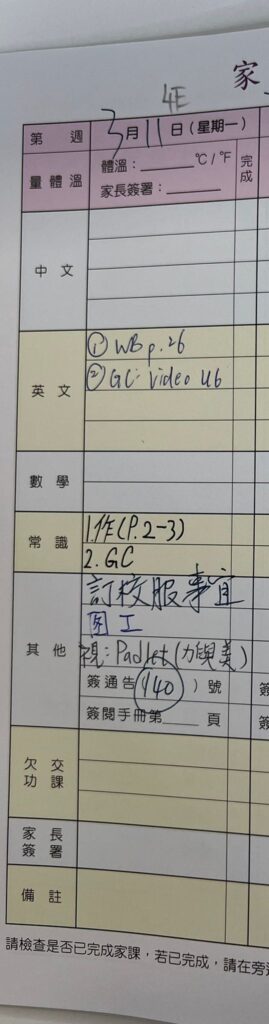 4E
家
第 週 3月11日(星期一)
量體溫 體溫:______°C/°F 完成
家長簽署:______
中文
英文 ① WB p.26
② GC: Video U6
數學
常識 1.作(P.2-3)
2.GC
其他 訂校服事宜
圖工
視: Padlet (力與美)
簽通告(140)號
簽閱手冊第____頁
欠交功課
家長簽署
備註
請檢查是否已完成家課,若已完成,請在旁